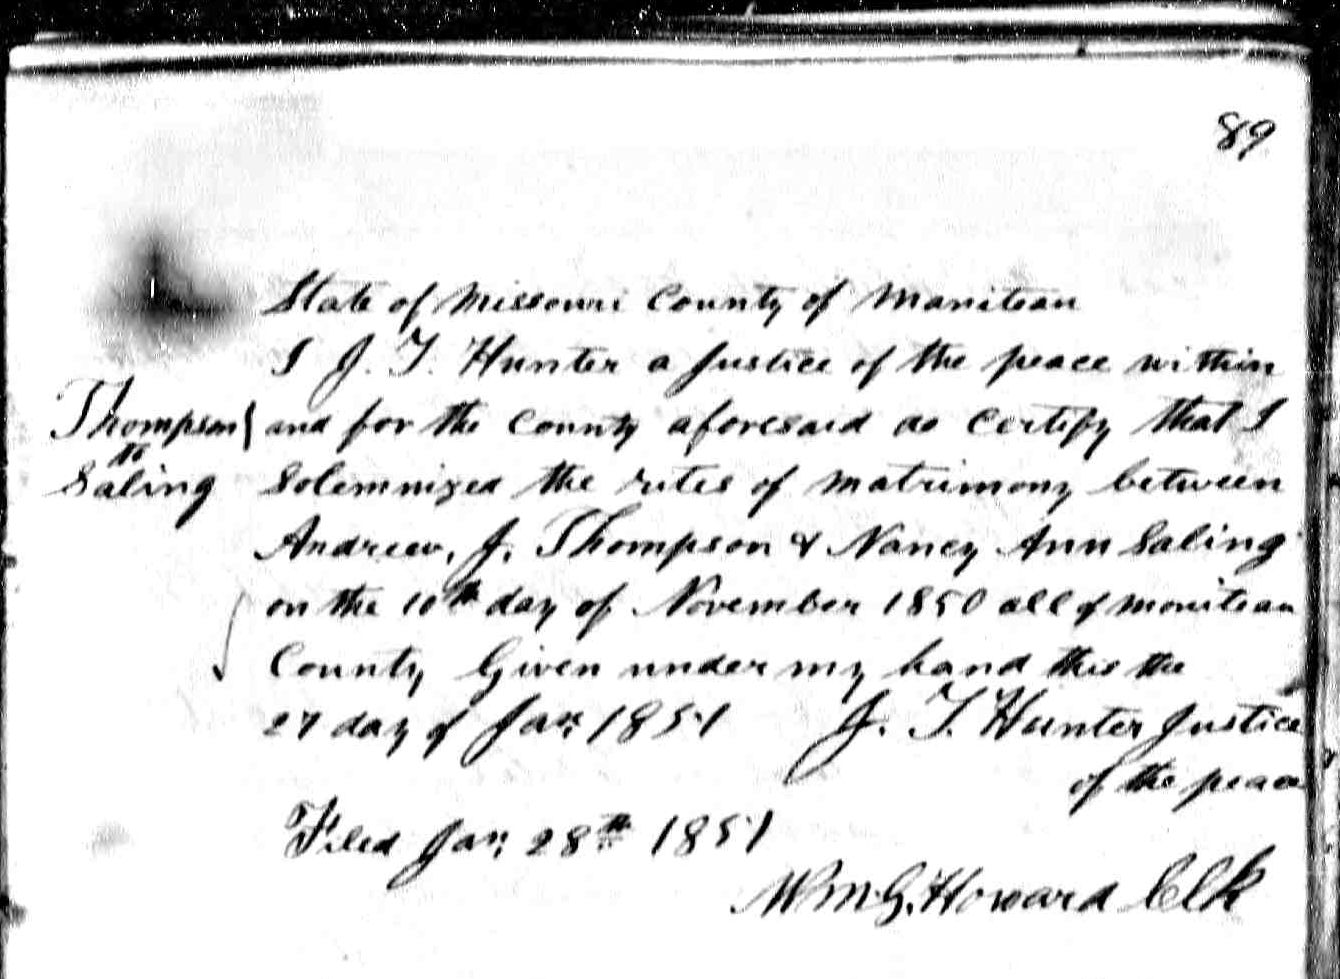 89
State of Missouri County of Moniteau
I J. T. Hunter a Justice of the peace within
Thompson } and for the County aforesaid do Certify that I
to
Saling Solemnized the rites of matrimony between
Andrew. J. Thompson & Nancy Ann Saling
on the 10th day of November 1850 all of moniteau
County Given under my hand this the
27 day of Jan, 1851 J. T. Hunter Justice
of the peace
Filed Jan, 28th 1851
Wm. G. Howard Clk